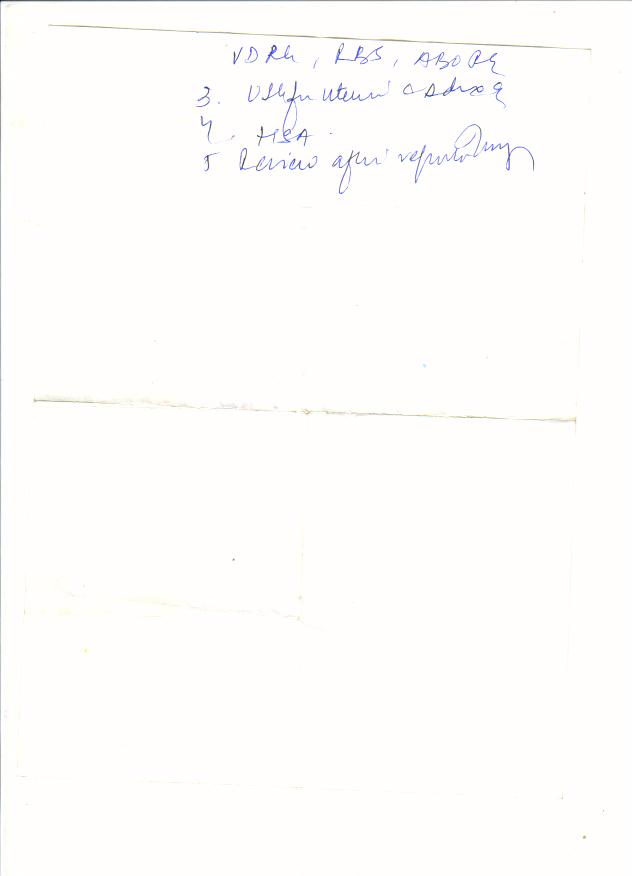 VDRL, RBS, ABO Rh
3. USG for Uterus c Adnexa
4. HSA
5 Review after reports